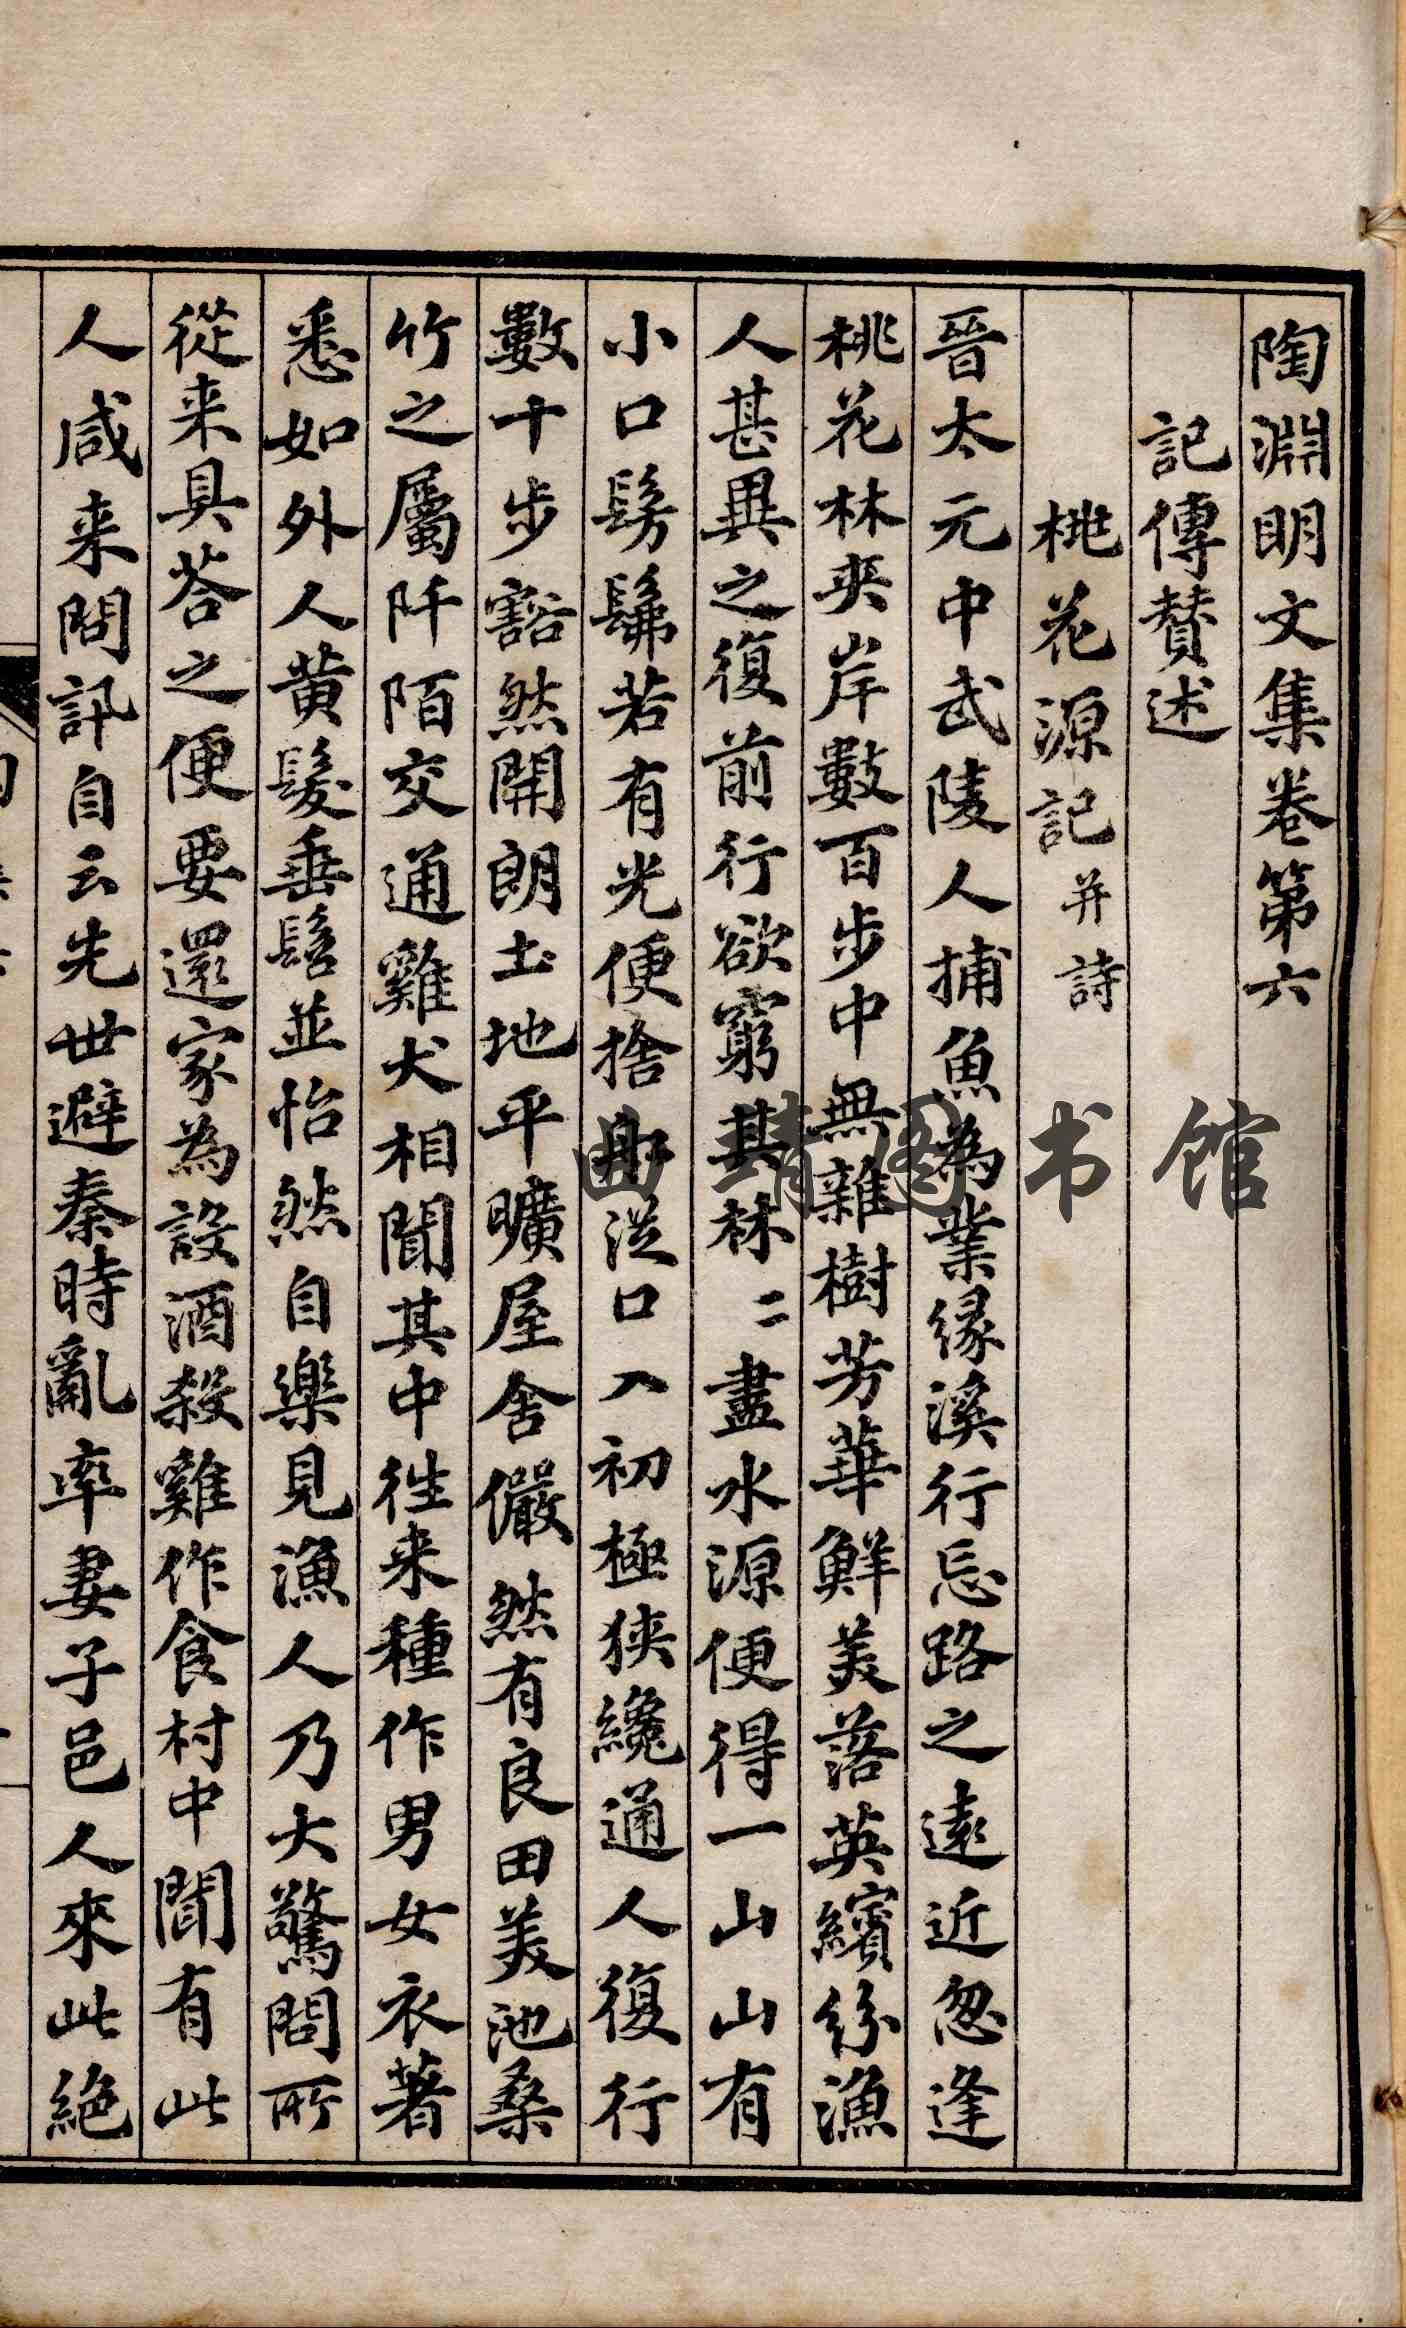 陶淵明文集卷第六
記傳賛述
桃花源記并詩
晉太元中武陵人捕魚為業緣溪行忘路之遠近忽逢
桃花林夾岸數百步中無雜樹芳華鮮美落英繽紛漁
人甚異之復前行欲窮其林二盡水源便得一山山有
小口髣髴若有光便捨舟從口入初極狹纔通人復行
數十步豁然開朗土地平曠屋舍儼然有良田美池桑
竹之屬阡陌交通雞犬相聞其中往来種作男女衣著
悉如外人黄髮垂髫並怡然自樂見漁人乃大驚問所
從来具荅之便要還家為設酒殺雞作食村中聞有此
人咸来問訊自云先世避秦時亂率妻子邑人來此絶
曲靖图书馆